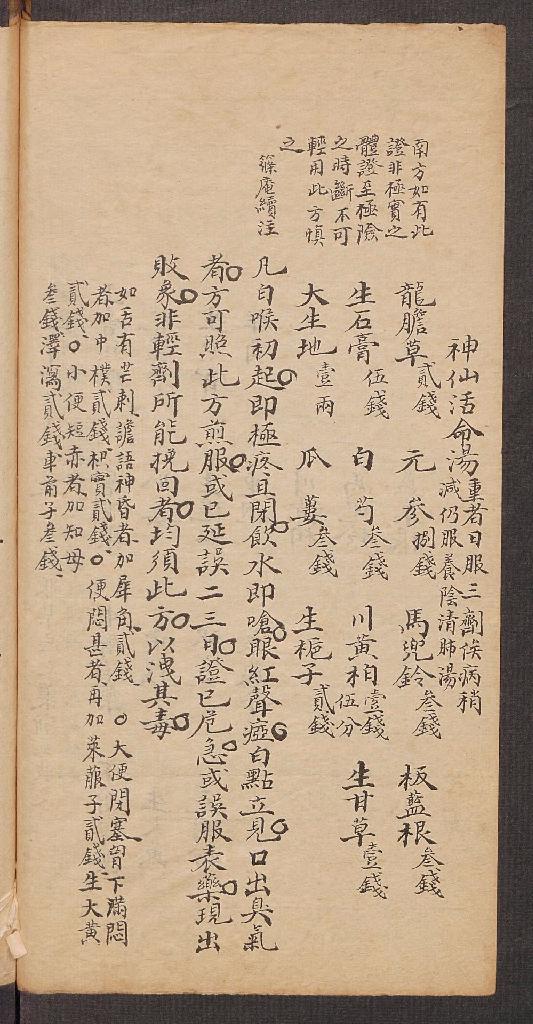 南方如有此
證非極實之
體證至極險
之時斷不可
輕用此方慎
之
篠庵續注
神仙活命湯 重者日服三劑俟病稍
減仍服養陰清肺湯
龍膽草 貳錢 元參 捌錢 馬兜鈴 叁錢 板藍根 叁錢
生石膏 伍錢 白芍 叁錢 川黃柏 壹錢伍分 生甘草 壹錢
大生地 壹兩 瓜蔞 叁錢 生梔子 貳錢
凡白喉初起○即極疼且閉○飲水即嗆○眼紅聲瘂○白點立見○口出臭氣
者○方可照此方煎服○或已延誤二三日○證已危急○或誤服表藥○現出
敗象○非輕劑所能挽回者○均須此方○以洩其毒○
如舌有芒刺、譫語神昏者、加犀角貳錢、○大便閉塞、胃下滿悶
者、加中樸貳錢、枳實貳錢、○便閉甚者、再加萊菔子貳錢、生大黃
貳錢、○小便短赤者、加知母
叁錢、澤瀉貳錢、車前子叁錢、